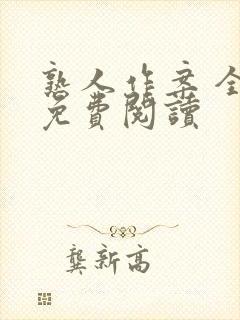 熟人作案全
免費閱讀
龔新高